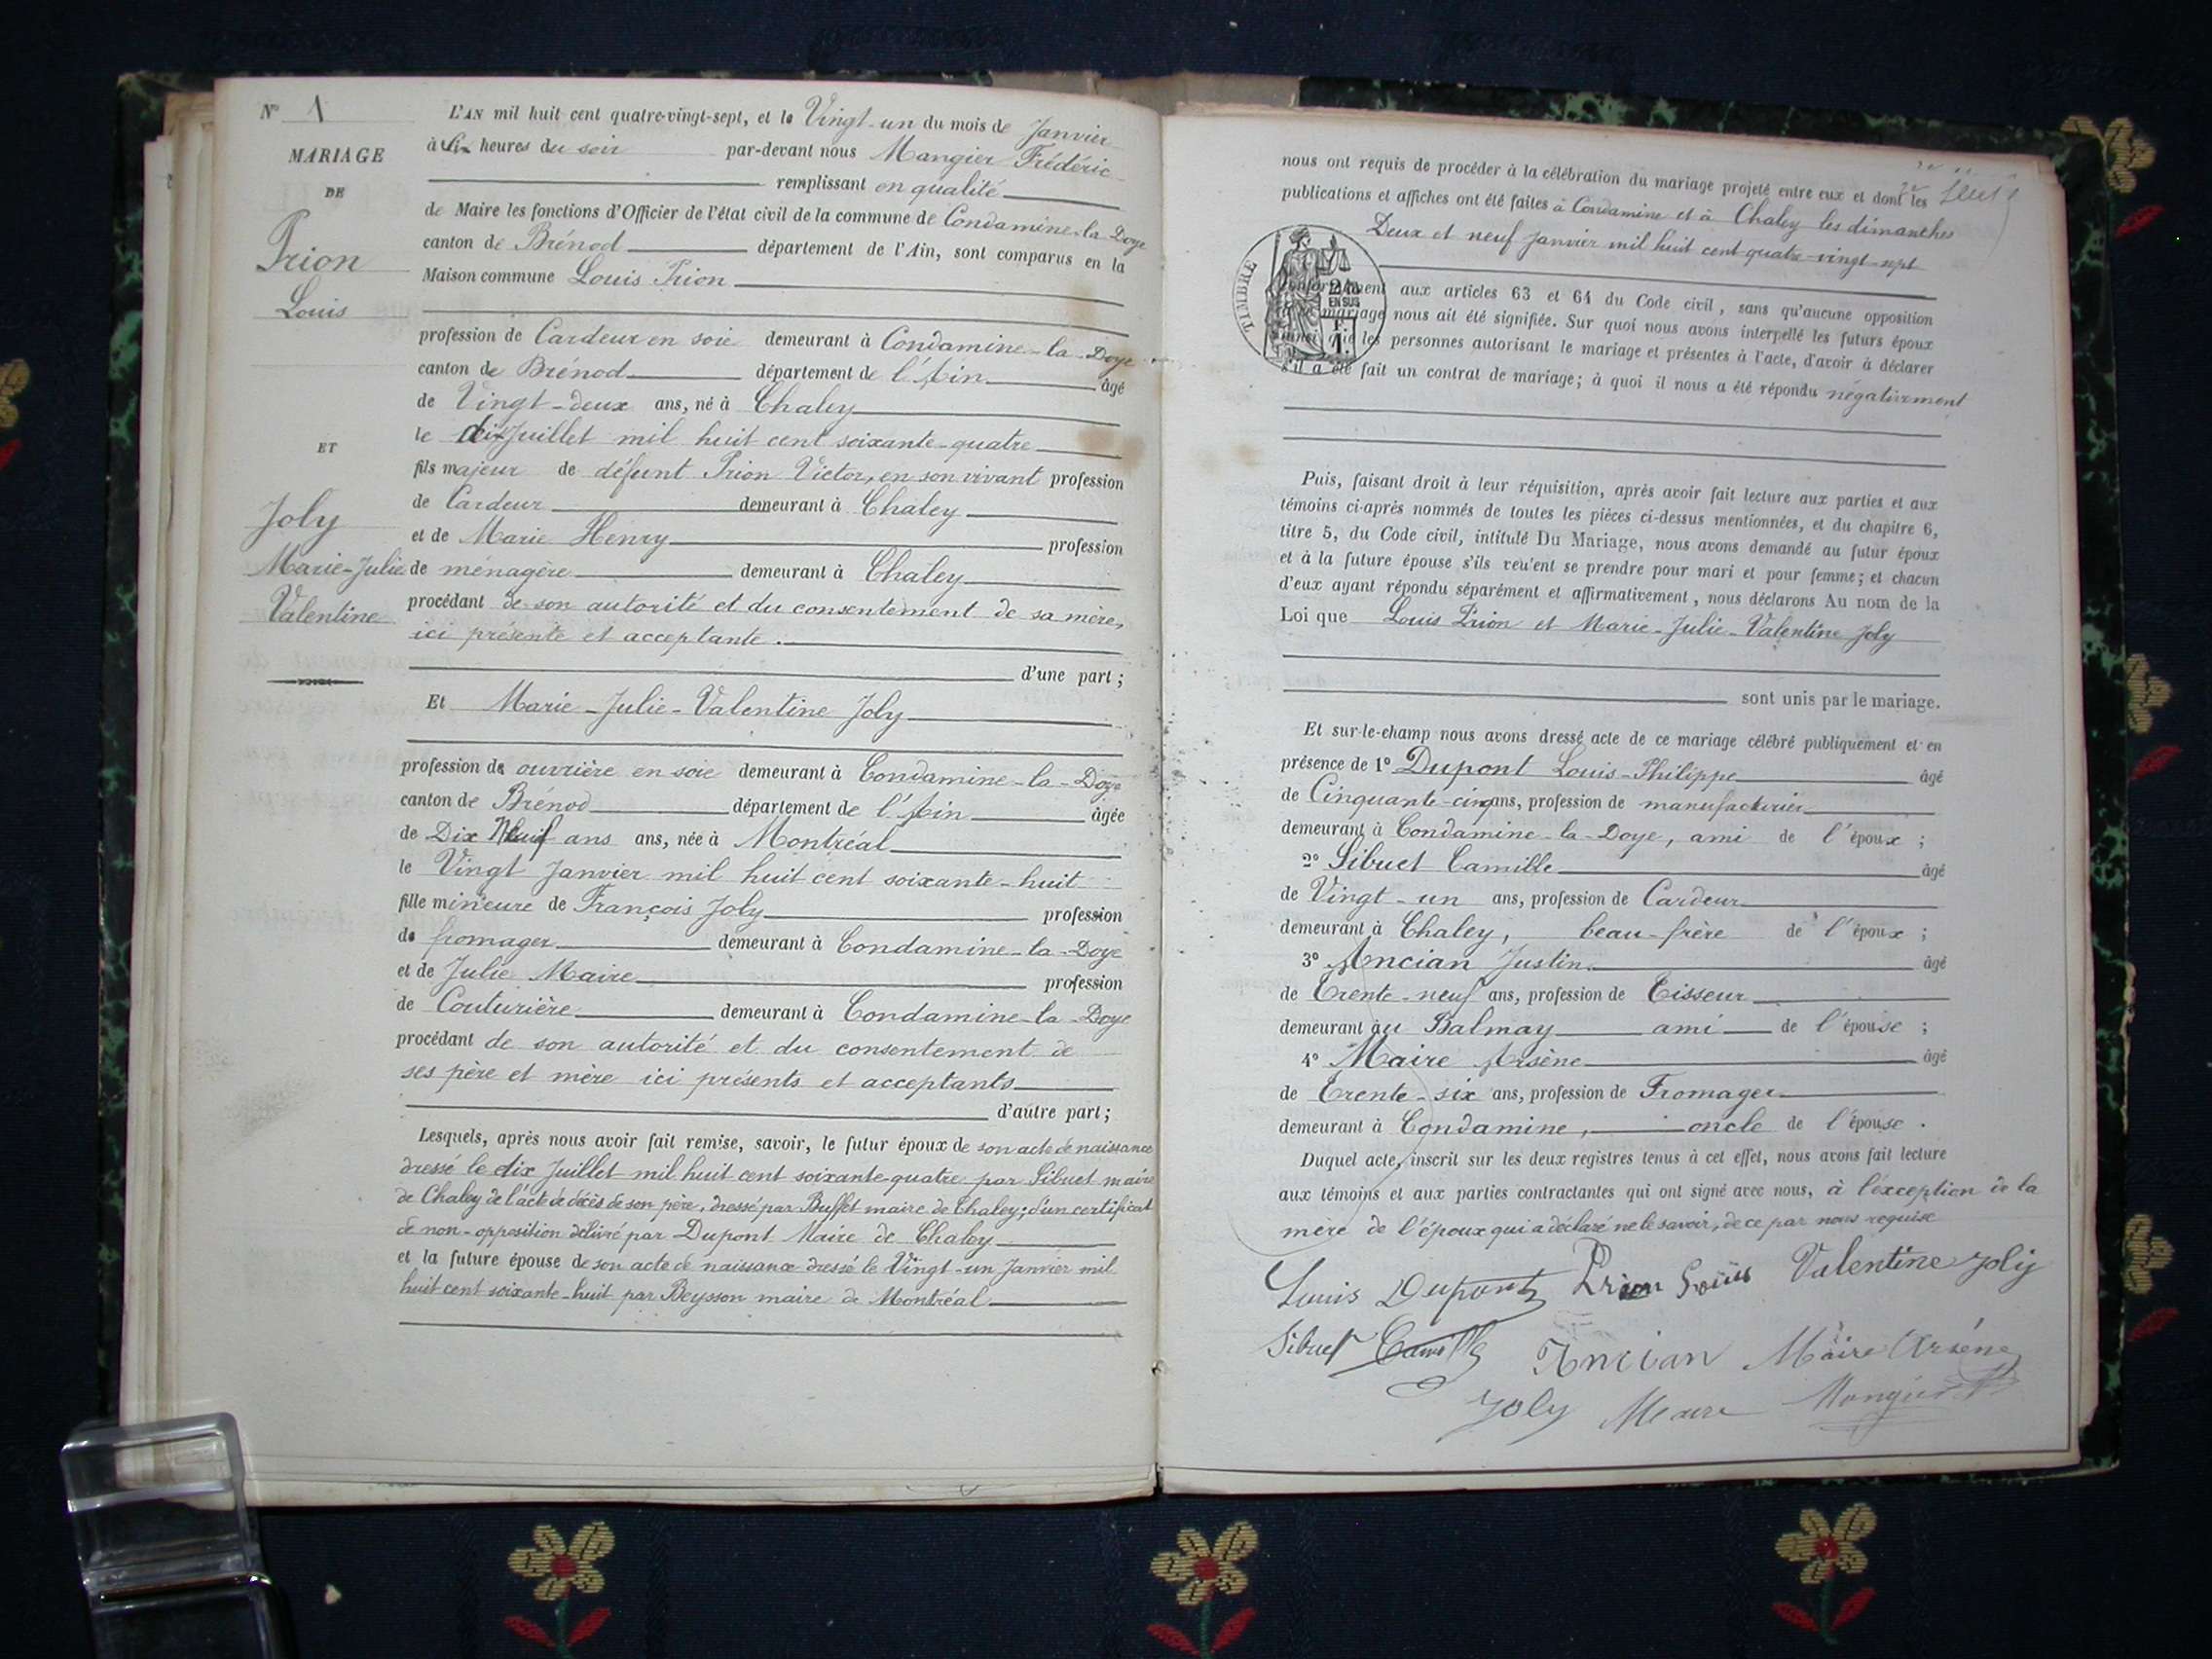 N° 1
MARIAGE
DE
Prion
Louis
ET
Joly
Marie-Julie
Valentine
L'AN mil huit cent quatre-vingt-sept, et le Vingt-un du mois de Janvier
à six heures du soir par-devant nous Mangier Frédéric
remplissant en qualité
de Maire les fonctions d'Officier de l'état civil de la commune de Condamine-la-Doye
canton de Brénod département de l'Ain, sont comparus en la
Maison commune Louis Prion
profession de Cardeur en soie demeurant à Condamine-la-Doye
canton de Brénod département de l'Ain âgé
de Vingt-deux ans, né à Chaley
le dix Juillet mil huit cent soixante-quatre
fils majeur de défunt Prion Victor, en son vivant profession
de Cardeur demeurant à Chaley
et de Marie Henry profession
de ménagère demeurant à Chaley
procédant de son autorité et du consentement de sa mère,
ici présente et acceptante.
d'une part;
Et Marie-Julie-Valentine Joly
profession de ouvrière en soie demeurant à Condamine-la-Doye
canton de Brénod département de l'Ain âgée
de Dix Neuf ans ans, née à Montréal
le Vingt Janvier mil huit cent soixante-huit
fille mineure de François Joly profession
de fromager demeurant à Condamine-la-Doye
et de Julie Maire profession
de Couturière demeurant à Condamine-la-Doye
procédant de son autorité et du consentement de
ses père et mère ici présents et acceptants
d'autre part;
Lesquels, après nous avoir fait remise, savoir, le futur époux de son acte de naissance
dressé le dix Juillet mil huit cent soixante-quatre par Sibuet maire
de Chaley de l'acte de décès de son père, dressé par Buffet maire de Chaley; d'un certificat
de non-opposition délivré par Dupont Maire de Chaley
et la future épouse de son acte de naissance dressé le Vingt-un Janvier mil
huit cent soixante-huit par Beysson maire de Montréal
nous ont requis de procéder à la célébration du mariage projeté entre eux et dont les
publications et affiches ont été faites à Condamine et à Chaley les dimanches
Deux et neuf janvier mil huit cent quatre-vingt-sept
TIMBRE
EN SUS
conformément aux articles 63 et 64 du Code civil, sans qu'aucune opposition
mariage nous ait été signifiée. Sur quoi nous avons interpellé les futurs époux
les personnes autorisant le mariage et présentes à l'acte, d'avoir à déclarer
s'il a été fait un contrat de mariage; à quoi il nous a été répondu négativement
Puis, faisant droit à leur réquisition, après avoir fait lecture aux parties et aux
témoins ci-après nommés de toutes les pièces ci-dessus mentionnées, et du chapitre 6,
titre 5, du Code civil, intitulé Du Mariage, nous avons demandé au futur époux
et à la future épouse s'ils veulent se prendre pour mari et pour femme; et chacun
d'eux ayant répondu séparément et affirmativement, nous déclarons Au nom de la
Loi que Louis Prion et Marie-Julie-Valentine Joly
sont unis par le mariage.
Et sur-le-champ nous avons dressé acte de ce mariage célébré publiquement et en
présence de 1° Dupont Louis-Philippe âgé
de Cinquante-cinq ans, profession de manufacturier
demeurant à Condamine-la-Doye, ami de l'époux;
2° Sibuet Camille âgé
de Vingt-un ans, profession de Cardeur
demeurant à Chaley, beau-frère de l'époux;
3° Ancian Justin. âgé
de Trente-neuf ans, profession de Tisseur
demeurant au Balmay ami de l'épouse;
4° Maire Arsène âgé
de Trente-six ans, profession de Fromager
demeurant à Condamine, oncle de l'épouse.
Duquel acte, inscrit sur les deux registres tenus à cet effet, nous avons fait lecture
aux témoins et aux parties contractantes qui ont signé avec nous, à l'exception de la
mère de l'époux qui a déclaré ne le savoir, de ce par nous requise
Louis Dupont Prion Louis Valentine Joly
Sibuet Camille Ancian Maire Arsène
Joly Maire Mangier